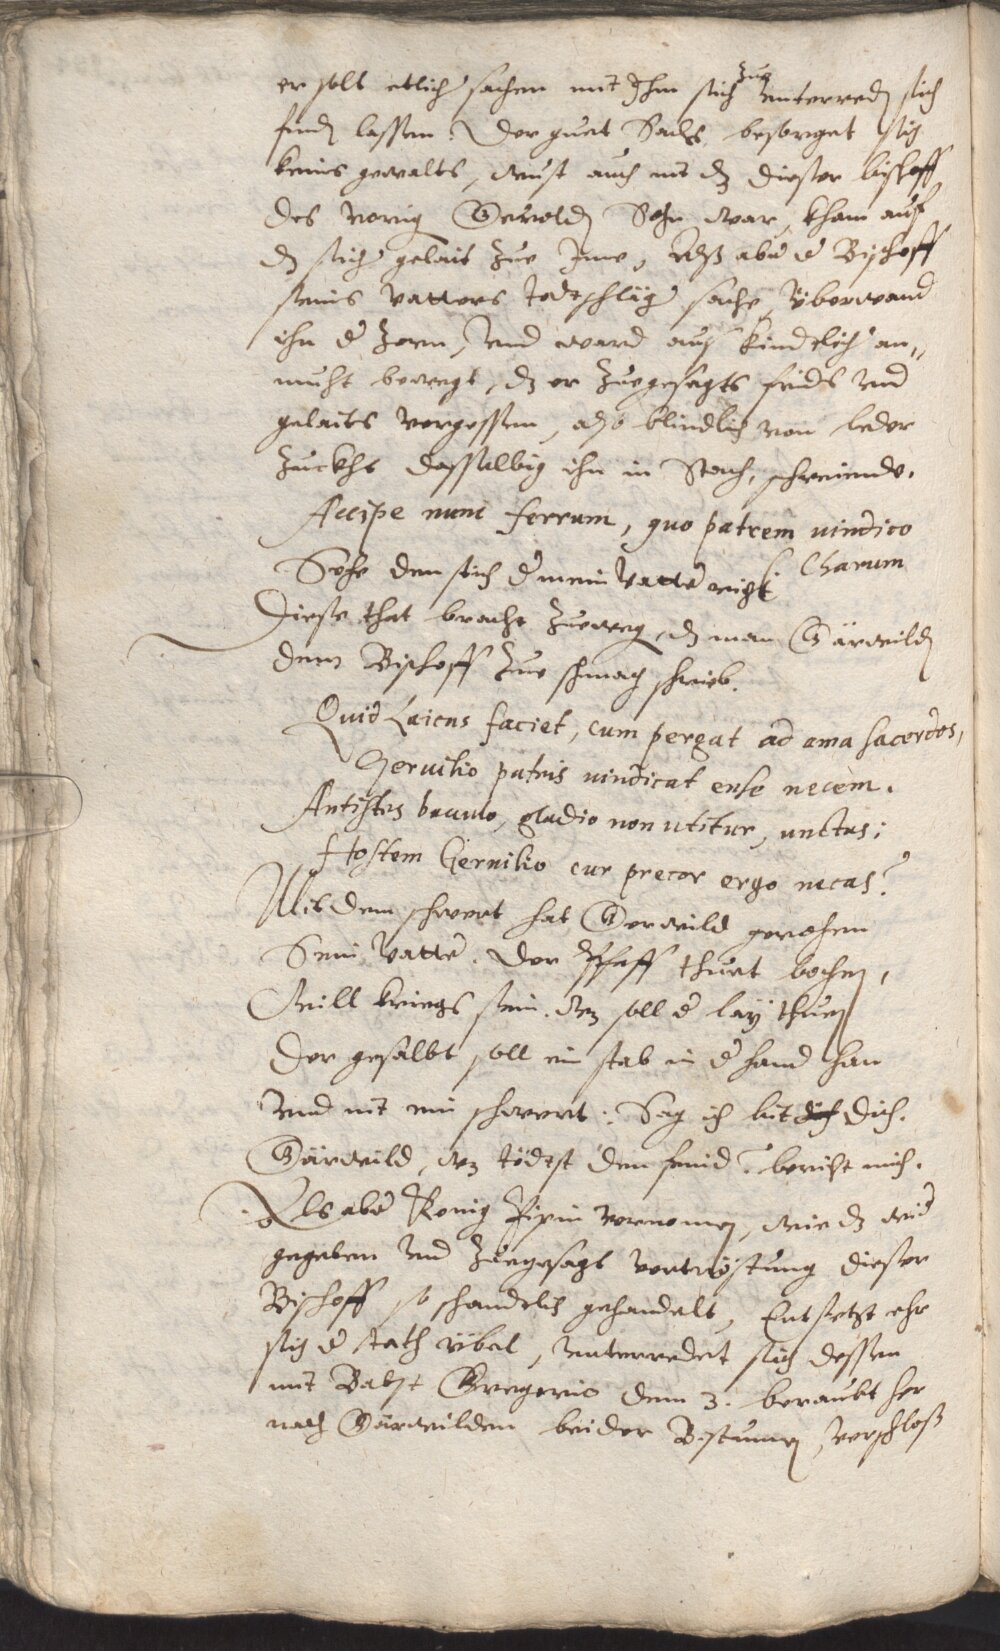 er solt etliche sachen mit Ihm sich zue unterreden sich
finden lassen. Der guet Sachs, besorget sich
keins gewalts, wust auch nit dz dieser bischoff
des vorig Gerolden Sohn war, kham auf
dz sicher gelait zue Ime, Alß aber der Bischoff
seins Vatters todtschläger sache, überwand
ihn der Zorn, und ward auß kindtlicher an„
muht bewegt, dz er zuegesagts frids und
gelaits vergessen, also blindlich von leder
Zuckht dasselbig ihn in Stach, schreiende.
Accipe nunc ferrum, quo patrem vindico
Charum
Sehe den stich der mein Vatter richt
Diese that brachte zueweg, dz man Gärwilden
dem Bischoff zue schmach schrieb.
Quid Laicus faciet, cum pergat ad arma sacerdos,
Gervilio patris vindicat ense necem.
Antistes baculo, gladio non utitur, unctus;
Hostem Gervilio cur precor ergo necas?
Mit dem schwert hat Gerwild gerochen
Sein Vatter. Der Pfaff thuet bochen,
Will kriegs sein. Wz soll der lay thuen
Der gesalbt soll ein stab in der hand han
Und nit ein schwert: Sag ich bit dich Dich.
Gärwild, wz tödtst den feind? bericht mich.
Als aber König Pipin vernomen, wie dz wider
gegeben und zuegesagt vertröstung dieser
Bischoff so schandtlich gehandelt, Entsetzt ehr
sich der tath übel, unterredet sich dessen
mit Babst Gregorio dem 3. beraubt her
nach Gärwilden beider Bistumen, verschloß